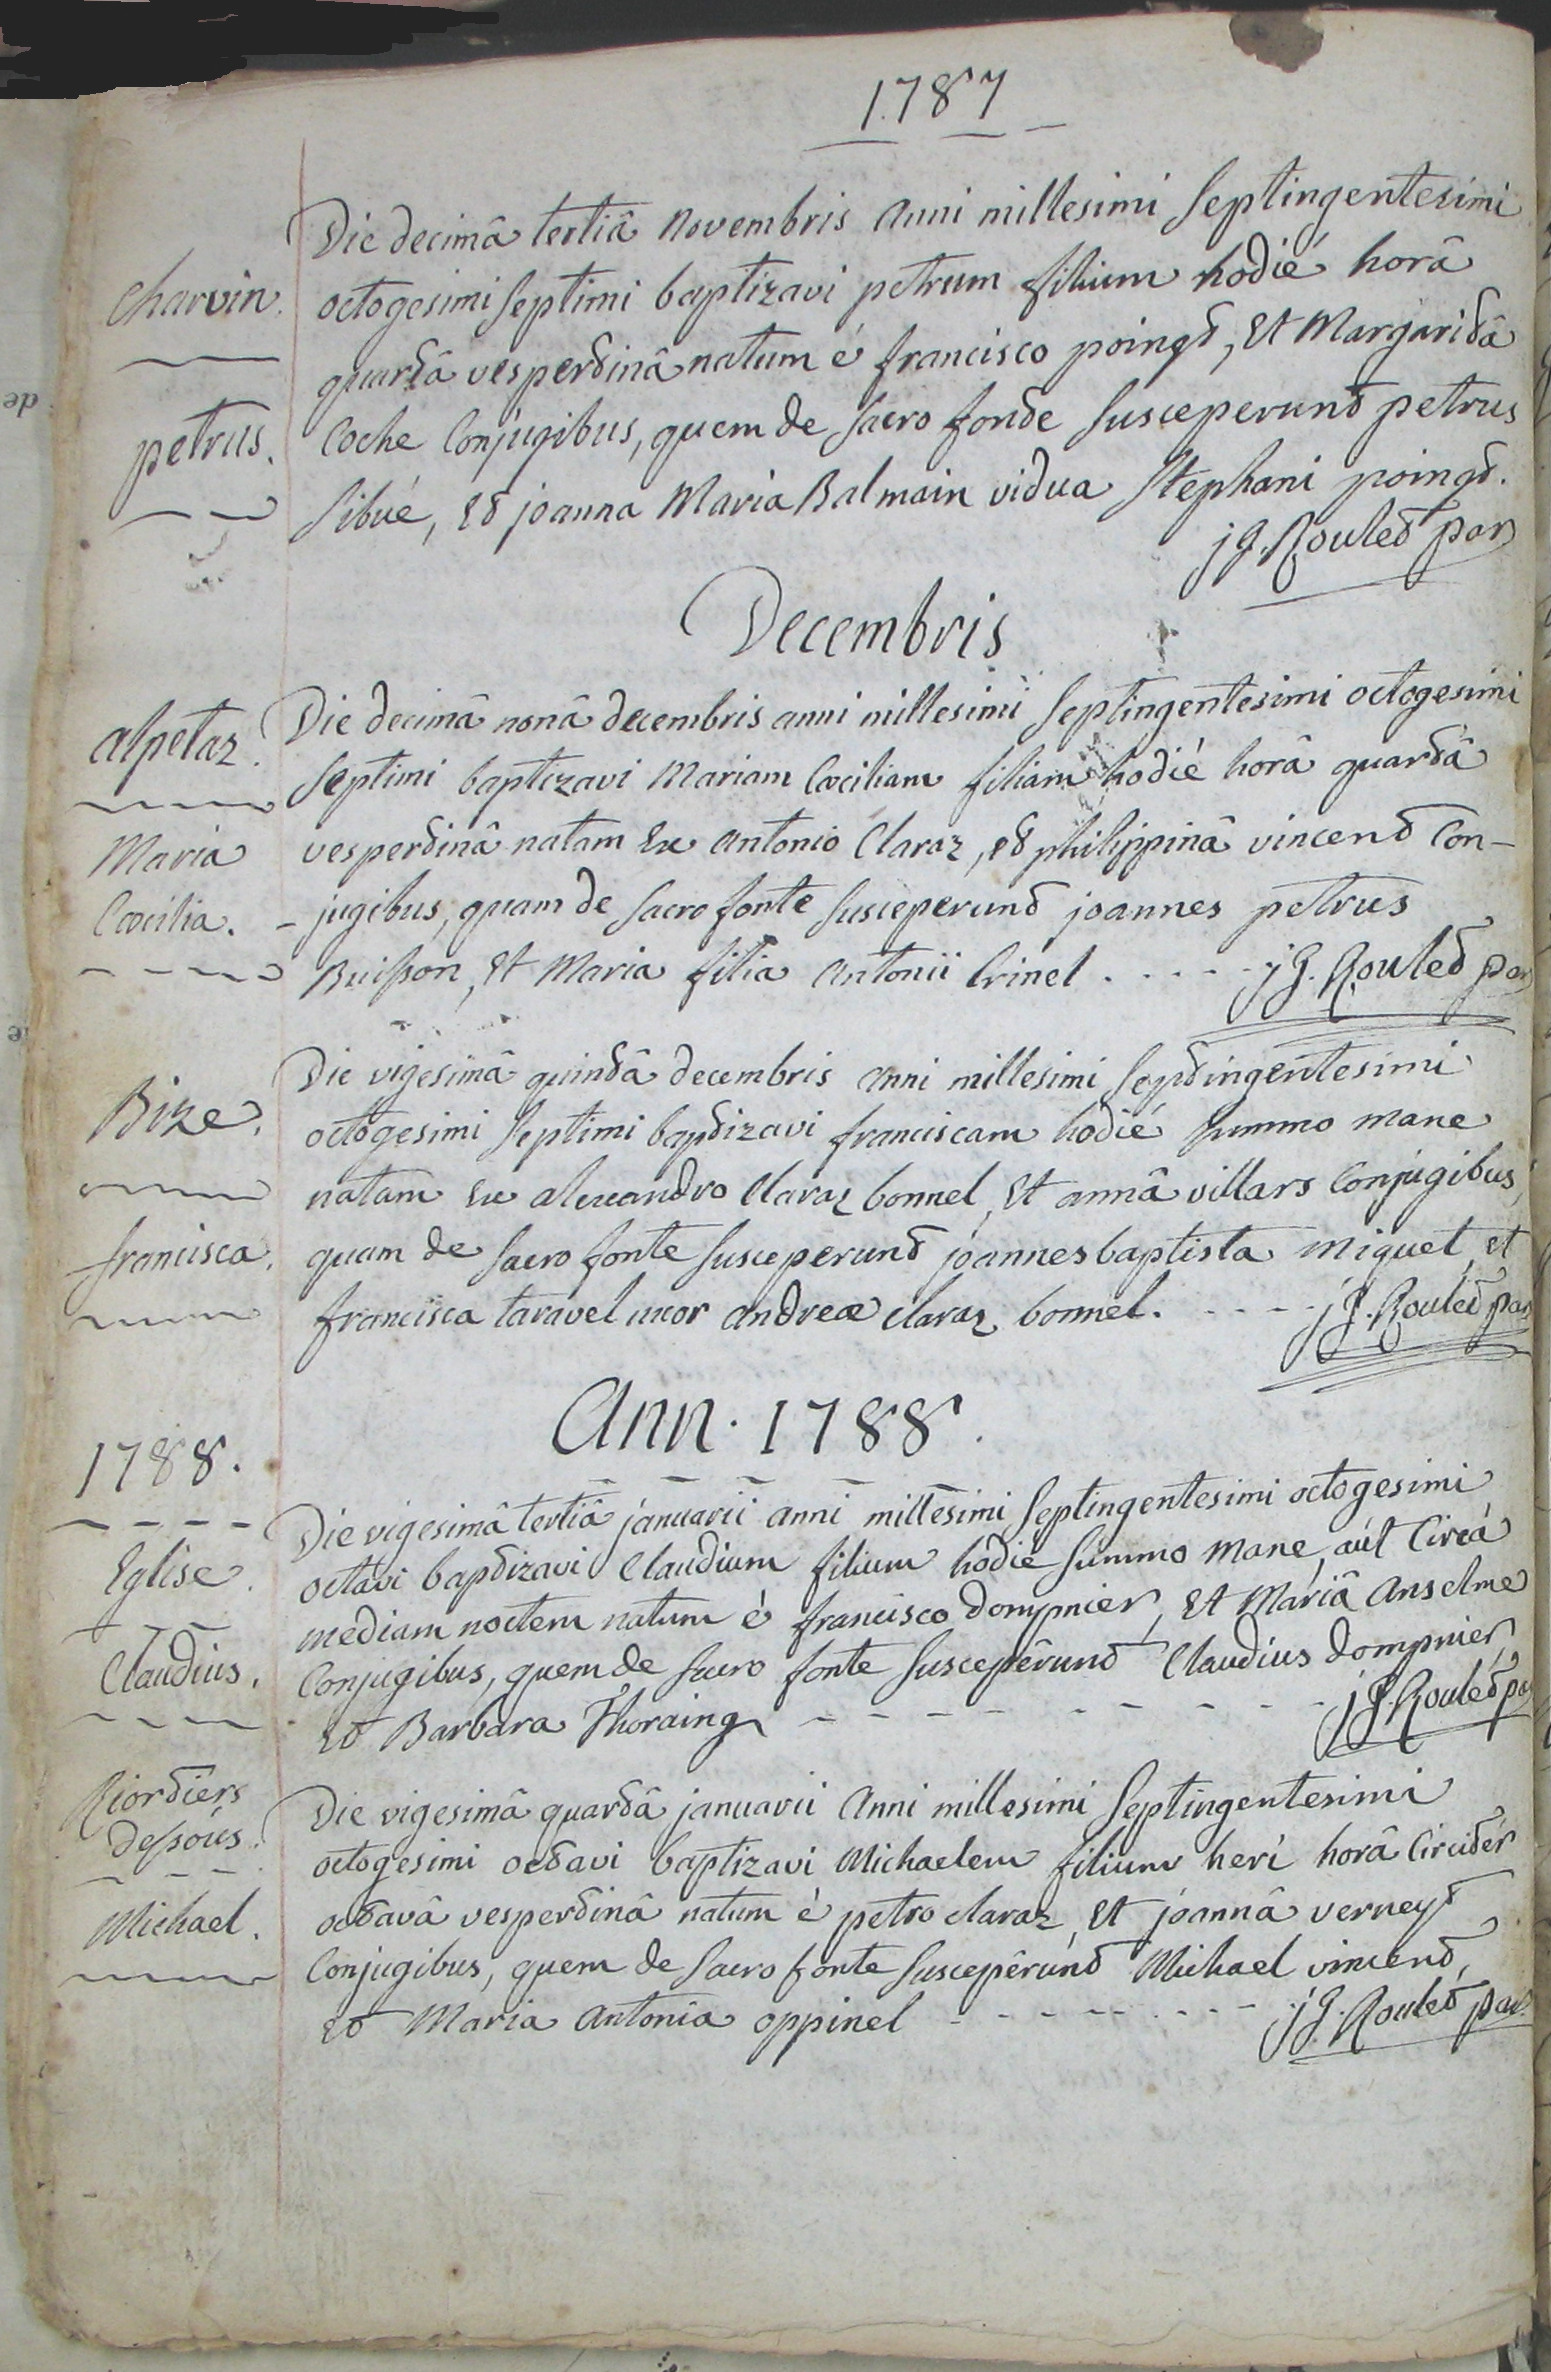 1787
Charvin.
petrus.
Die decimâ tertiâ novembris anni millesimi septingentesimi
octogesimi septimi baptizavi petrum filium hodié horâ
quartâ vespertinâ natum é francisco poingt, et Margaritâ
Coche Conjugibus, quem de sacro fonte susceperunt petrus
sibué, et joanna Maria Balmain vidua stephani poingt.
jg. Roulet par
Decembris
alpetaz.
Maria
Cœcilia.
Die decimâ nonâ decembris anni millesimi septingentesimi octogesimi
septimi baptizavi Mariam Cœciliam filiam hodié horâ quartâ
vespertinâ natam ex antonio Claraz, et philippinâ vincent Con-
-jugibus, quam de sacro fonte susceperunt joannes petrus
Buisson, et Maria filia antonii Crinel. - - - - - jg. Roulet par
Bize.
francisca.
Die vigesimâ quintâ decembris anni millesimi septingentesimi
octogesimi septimi baptizavi franciscam hodié summo mane
natam ex alexandro Claraz bonnel, et annâ villars Conjugibus,
quam de sacro fonte susceperunt joannes baptista miquet, et
francisca taravel uxor andreæ claraz bonnel. - - - - jg. Roulet par
Ann. 1788.
1788.
Eglise.
Claudius.
Die vigesimâ tertiâ januarii anni millesimi septingentesimi octogesimi
octavi baptizavi Claudium filium hodie summo mane, aút Circá
mediam noctem natum é francisco dompnier, et Mariâ anselme
Conjugibus, quem de sacro fonte susceperunt Claudius dompnier,
et Barbara Thoraing - - - - - - - - - jg. Roulet par
Riortiers
dessous.
Michael.
Die vigesimâ quartâ januarii anni millesimi septingentesimi
octogesimi octavi baptizavi Michaelem filium heri horâ Circiter
octavâ vespertinâ natum é petro claraz, et joannâ verneyt
Conjugibus, quem de sacro fonte suscepêrunt Michael vincent,
et Maria antonia oppinel - - - - - - - - - jg. Roulet par.